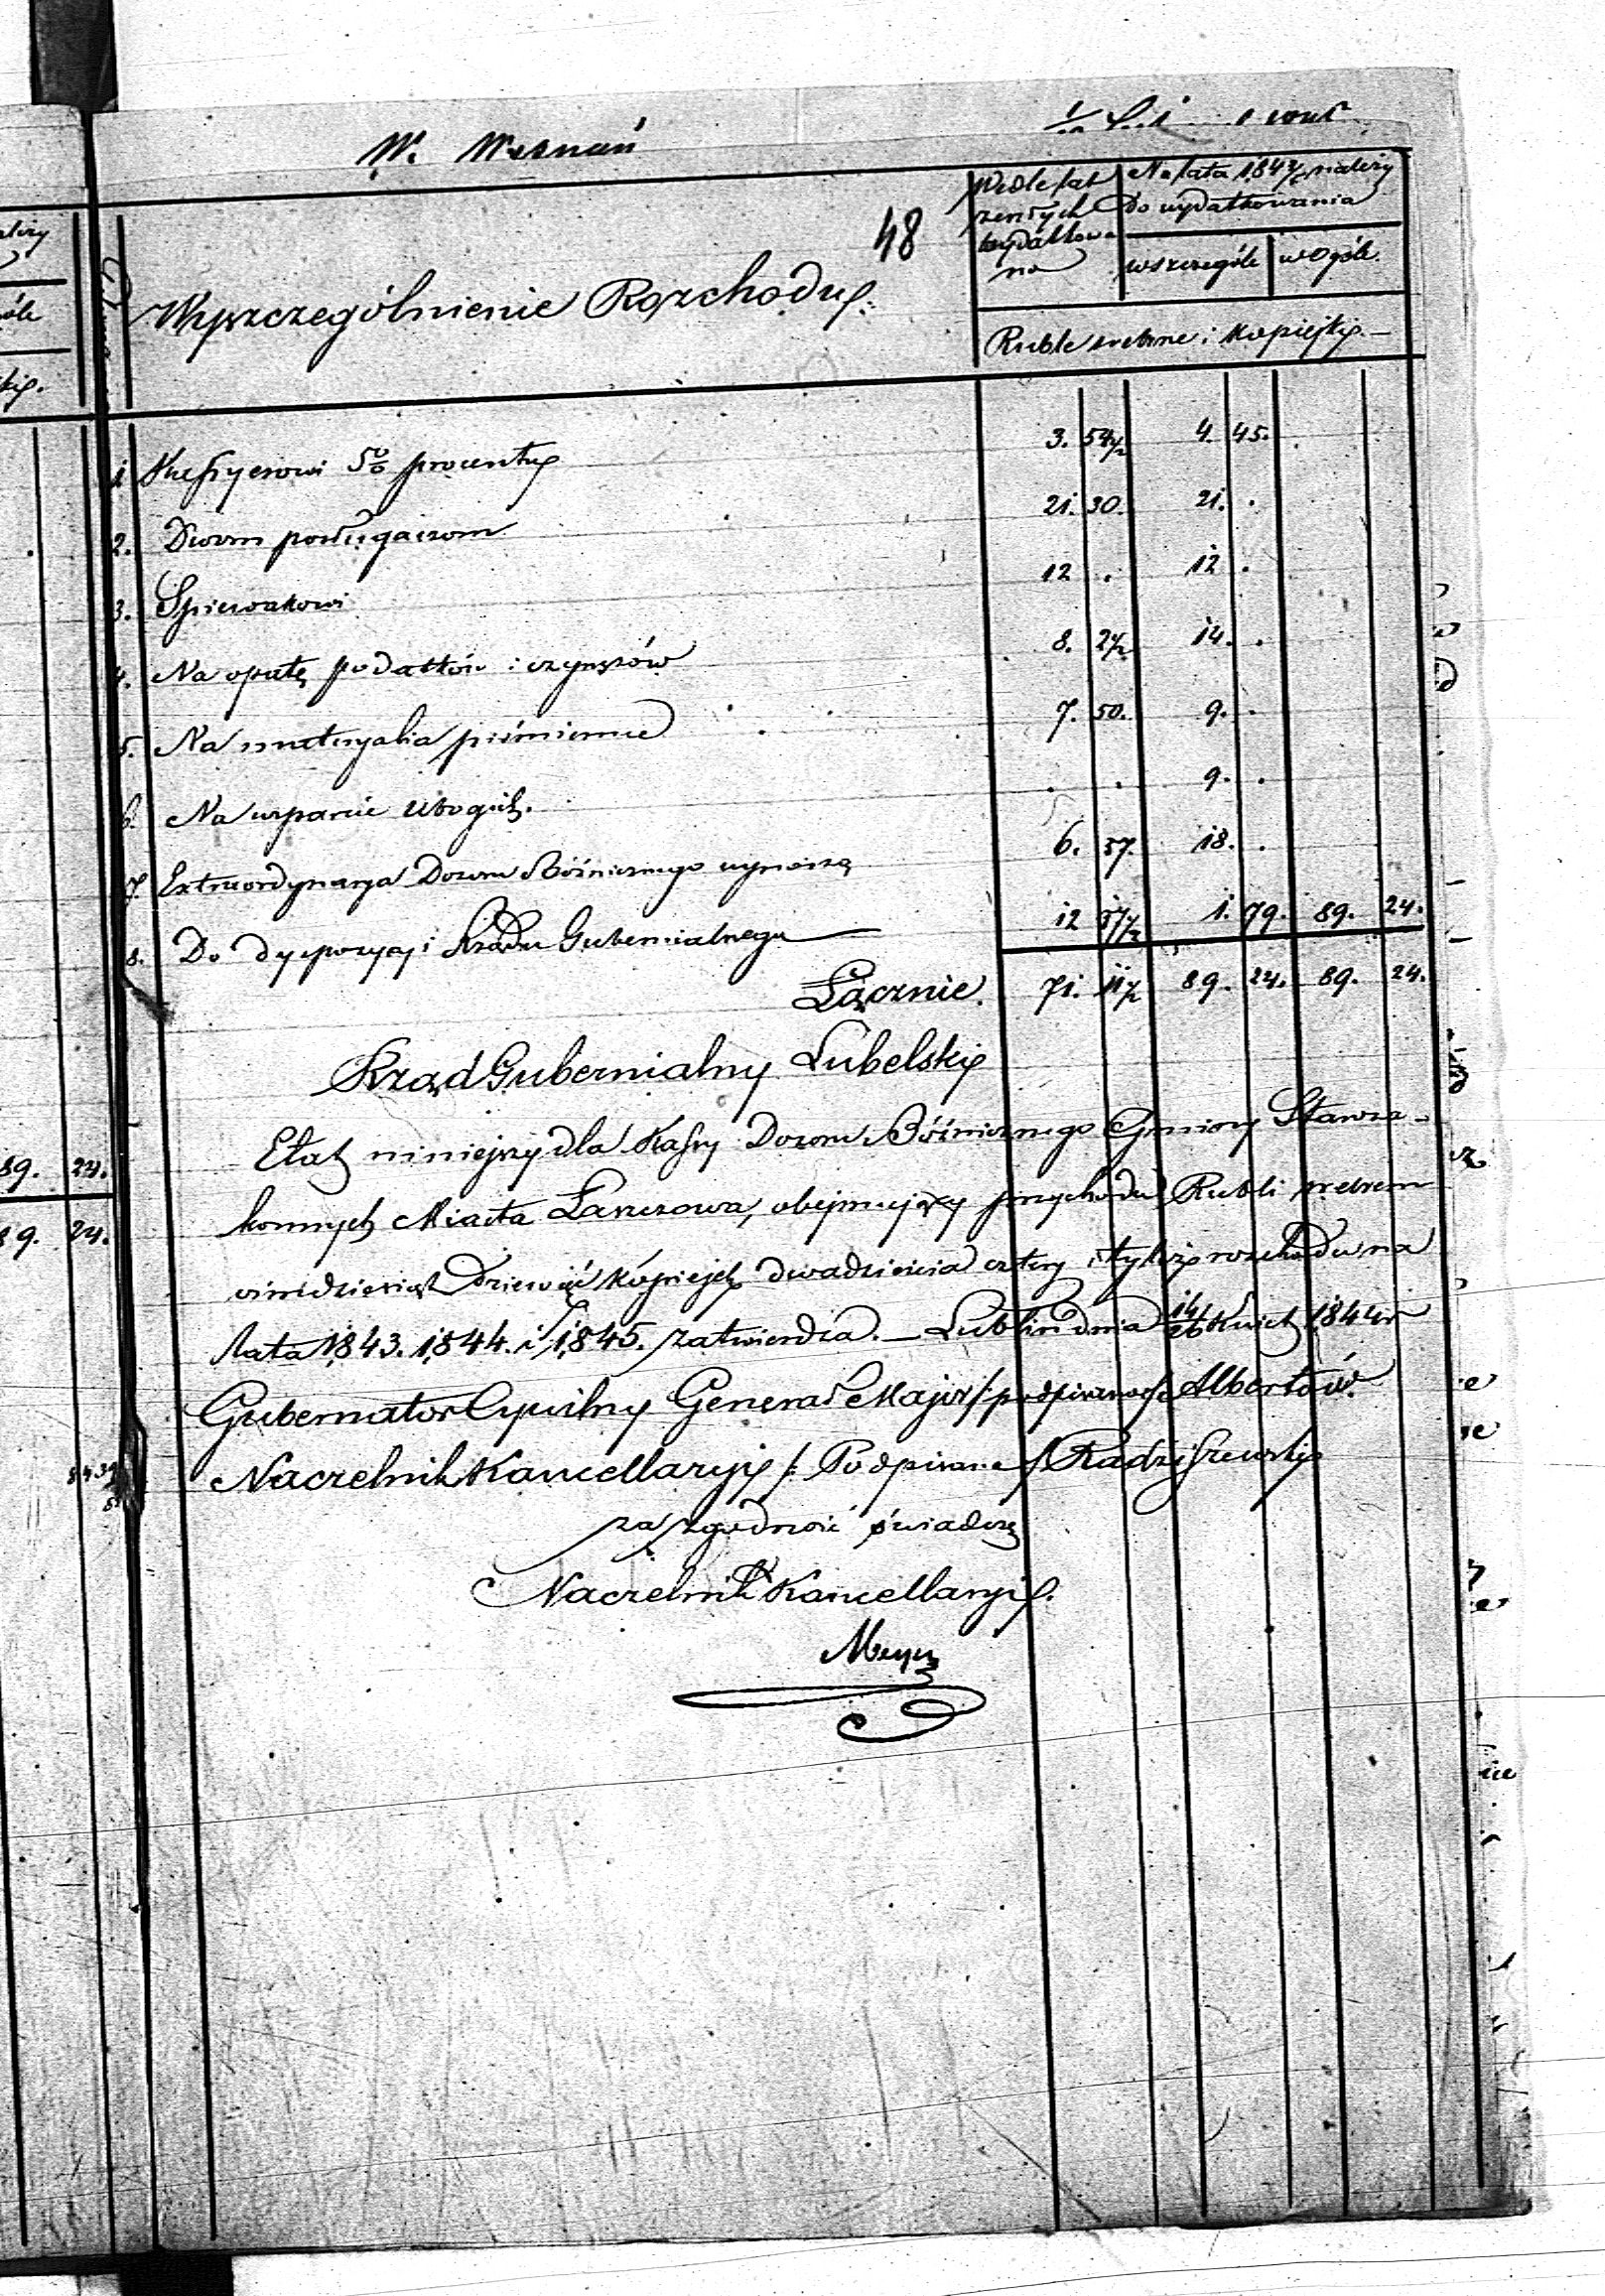 48
Wedle lat
zeszłych
wydatkowa
no
Na lata 1843/5 należy
do wydatkowania
wszczególe
wogóle.
Wyszczególnienie Rozchodu
Ruble srebrne i kopiejki.—
1 Kassyerowi 5% procentu 3. 54½ 4. 45.
2. Dwom posługaczom 21. 30. 21. .
3. Spiewakowi 12 . 12 .
4. Na opłatę podatków i czynszów 8. 2½ 14. .
5. Na materyalia piśmienne 7. 50. 9. .
6. Na wsparcie Ubogich. . . 9. .
7. Extraordynarya Dozoru Bóżniczego wynoszą 6. 57. 18. .
8. Do dyspozycyi Rządu Gubernialnego 12 17½ 1. 79. 89. 24.
Łącznie. 71. 11½ 89. 24. 89. 24.
Rząd Gubernialny Lubelski
Etat niniejszy dla Kassy Dozoru Bóżniczego Gminy Starоza-
konnych Miasta Łaszczowa, obejmujący przychodu Rubli srebrem
ośmdziesiąt dziewięć kopiejek dwadzieścia cztery i tyleż rozchodu na
lata 1843. 1844. i 1845. zatwierdza.— Lublin dnia 14/26 Kwiet 1844 r
Gubernator Cywilny Generał Major /: podpisano :/ Albertów.
Naczelnik Kancellaryi /: Podpisano :/ Radziszewski
za zgodność świadczę
Naczelnik Kancellaryi.
89. 24.
89. 24.